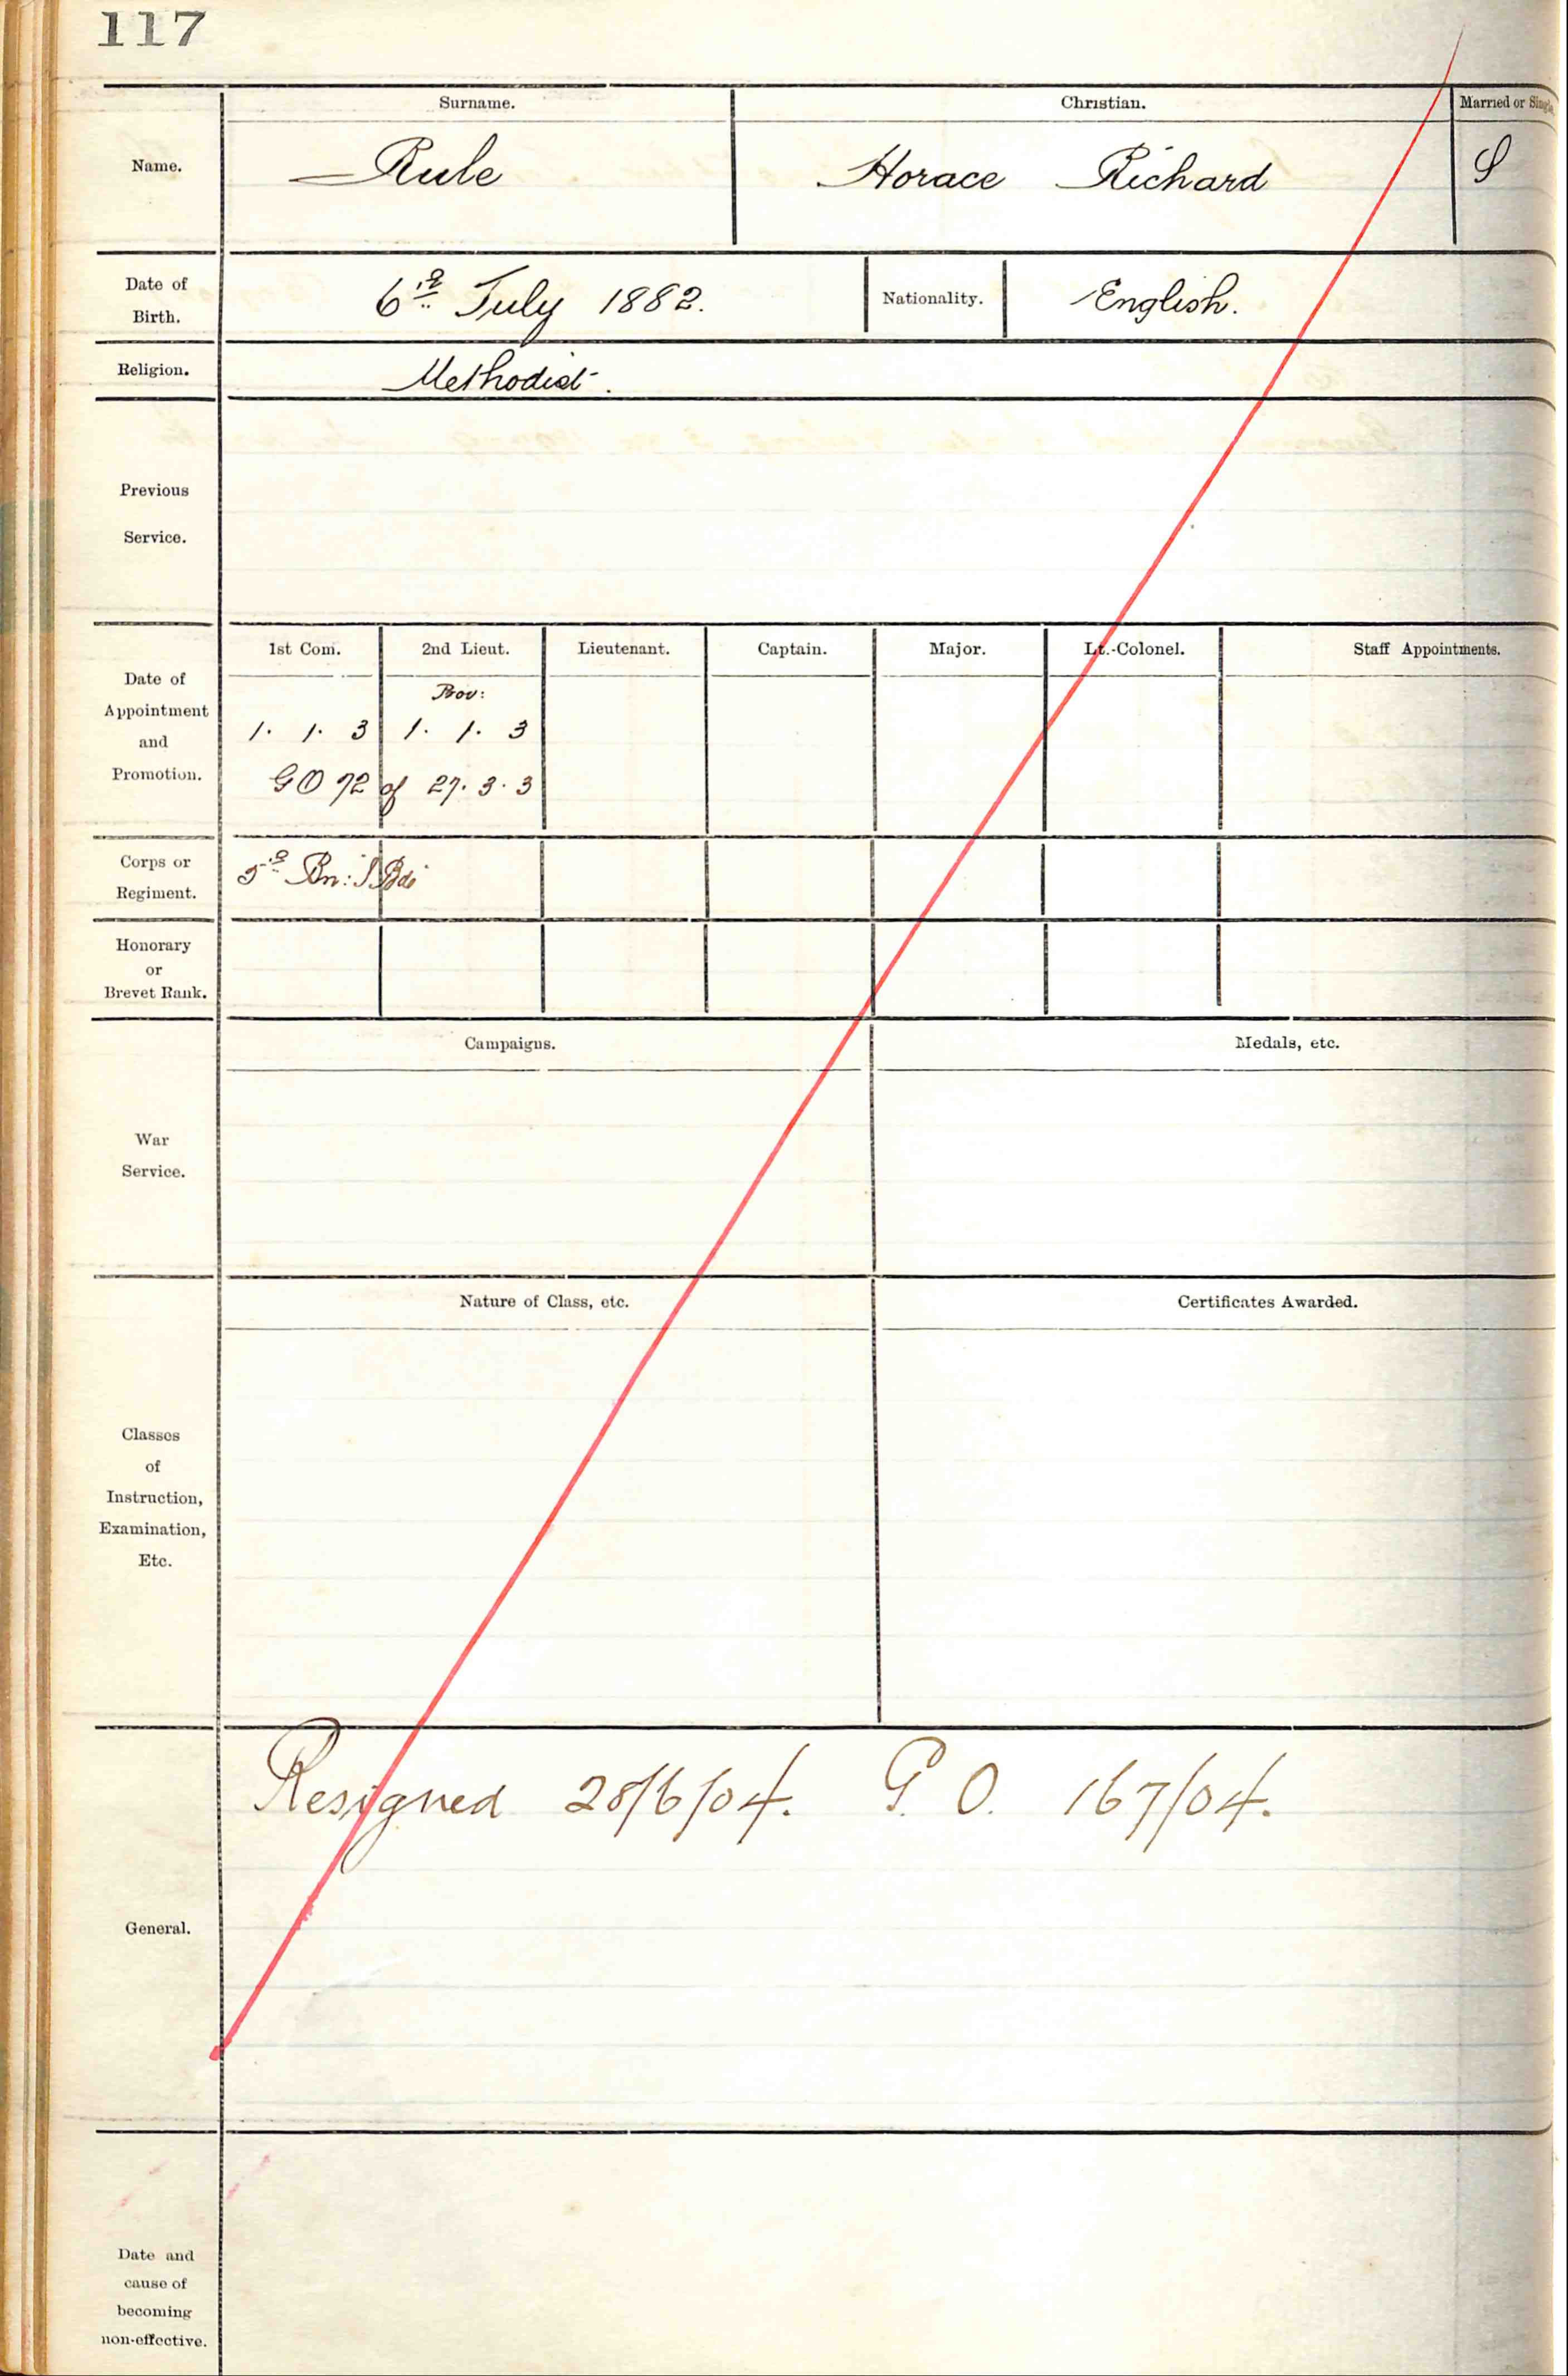 117
Surname. Christian. Married or Single
Name. Rule Horace Richard S
Date of Birth. 6th July 1882. Nationality. English.
Religion. Methodist.
Previous Service.
Date of Appointment and Promotion.
1st Com. 2nd Lieut. Lieutenant. Captain. Major. Lt.-Colonel. Staff Appointments.
Prov:
1. 1. 3 1. 1. 3
GO 72 of 27. 3. 3
Corps or Regiment. 5th Bn:
Honorary or Brevet Rank.
Campaigns. Medals, etc.
War Service.
Nature of Class, etc. Certificates Awarded.
Classes of Instruction, Examination, Etc.
Resigned 28/6/04. G. O. 167/04.
General.
Date and cause of becoming non-effective.